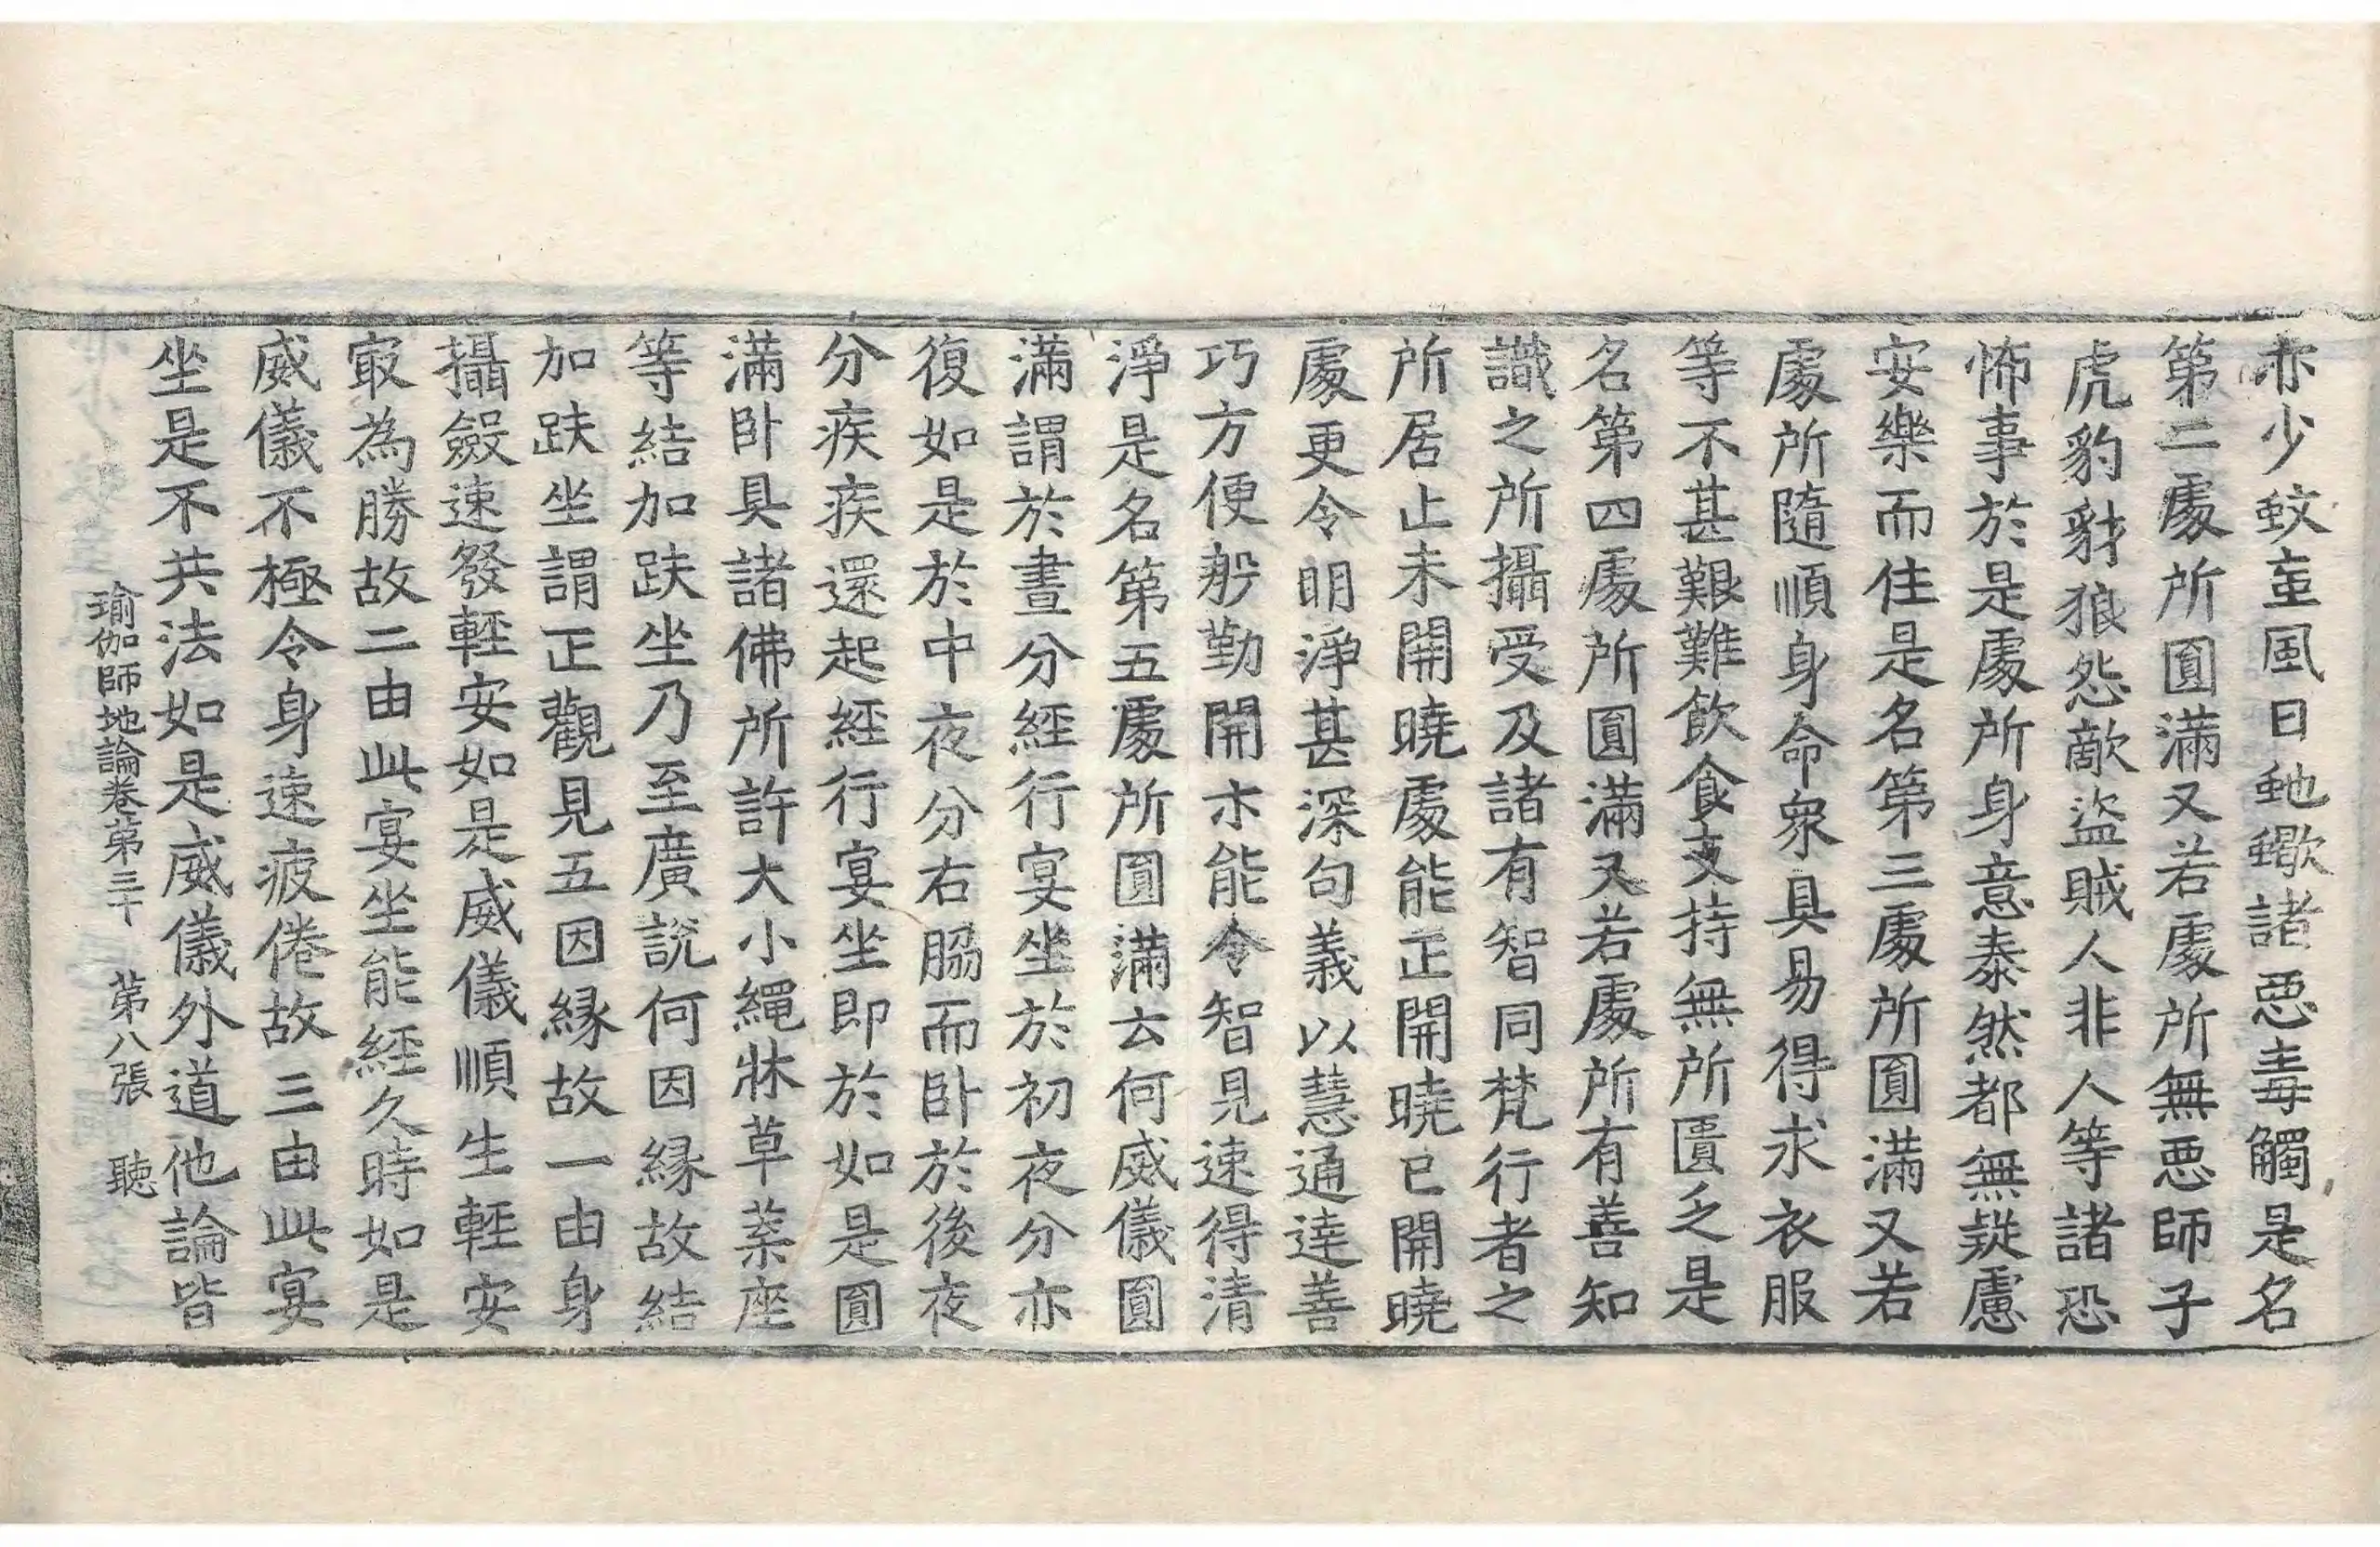 亦少蚊䖝風日虵蠍諸惡毒觸是名
第二處所圓滿又若處所無惡師子
虎豹豺狼怨敵盜賊人非人等諸恐
怖事於是處所身意泰然都無疑慮
安樂而住是名第三處所圓滿又若
處所隨順身命衆具易得求衣服
等不甚艱難飲食支持無所匱乏是
名第四處所圓滿又若處所有善知
識之所攝受及諸有智同梵行者之
所居止未開曉處能正開曉已開曉
處更令明淨甚深句義以慧通達善
巧方便般勤開示能令智見速得清
淨是名第五處所圓滿云何威儀圓
滿謂於晝分經行宴坐於初夜分亦
復如是於中夜分右脇而卧於後夜
分疾疾還起經行宴坐即於如是圓
滿卧具諸佛所許大小繩牀草葉座
等結加趺坐乃至廣說何因縁故結
加趺坐謂正觀見五因縁故一由身
攝斂速發輕安如是威儀順生輕安
㝡為勝故二由此宴坐能經久時如是
威儀不極令身速疲倦故三由此宴
坐是不共法如是威儀外道他論皆
瑜伽師地論卷第三十　第八張　聽